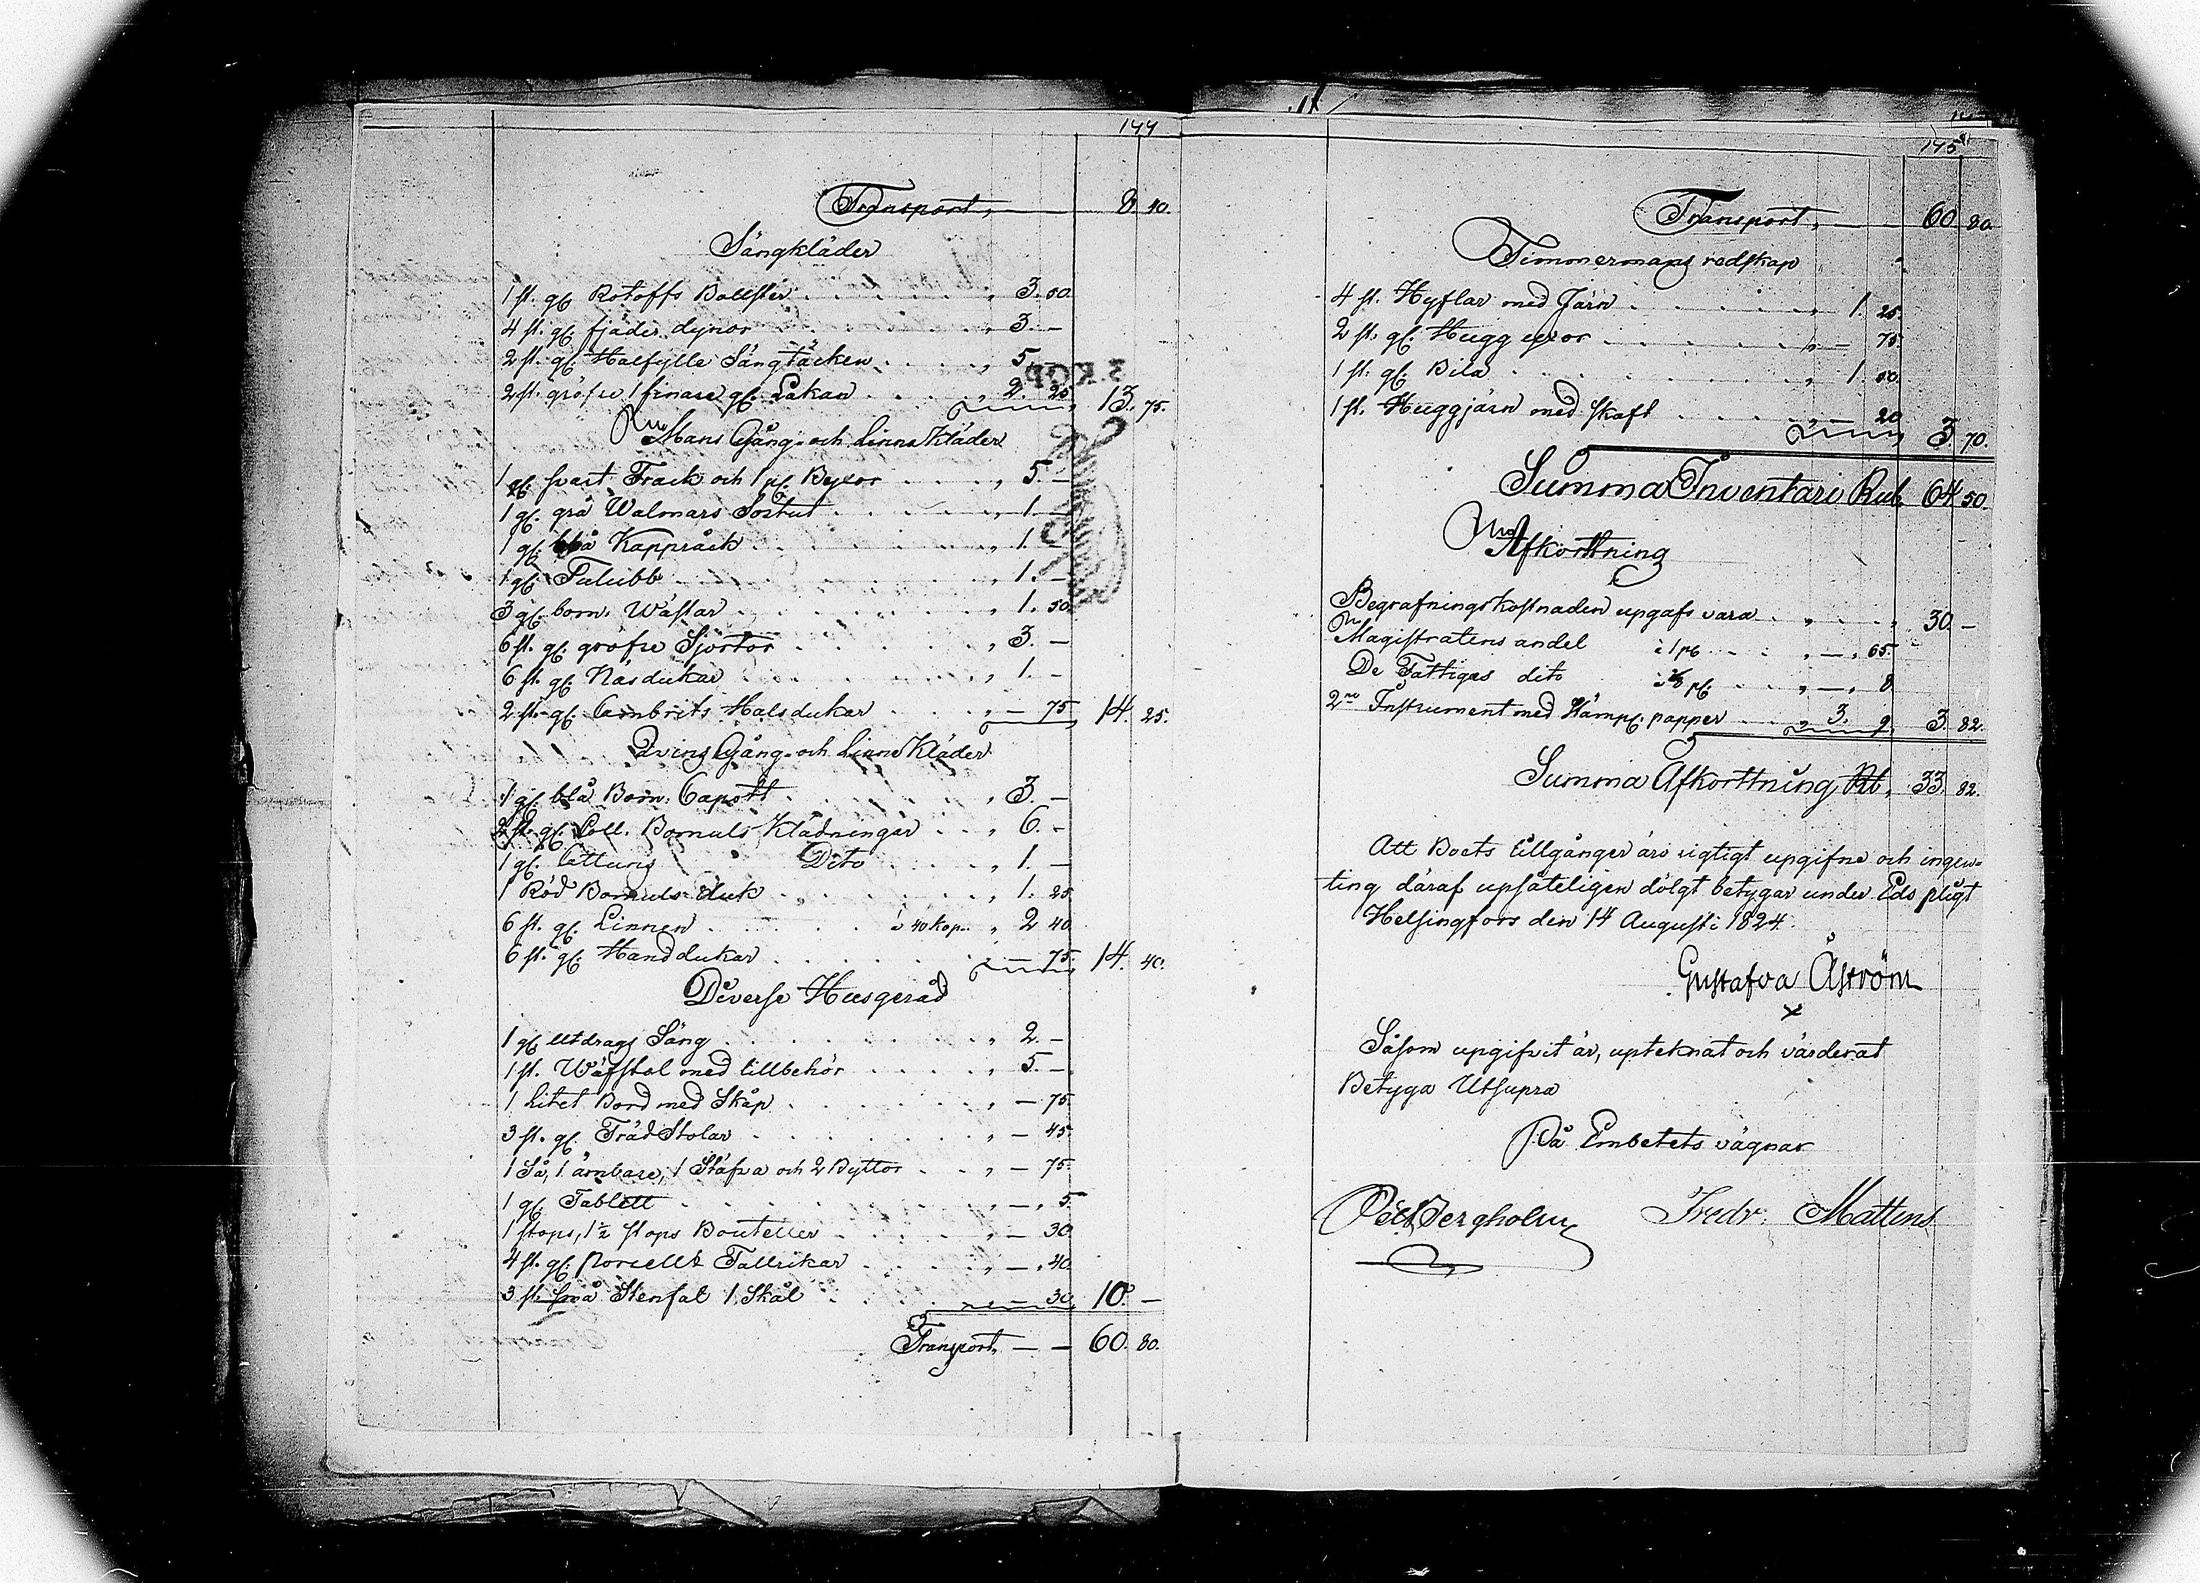 144
Transport, 8 40.
Sängkläder
1 st. gl. Rotoffs Bollster „ 3. 50.
4 st. gl. fjäder dynor „ 3. —
2 st. gl. Halfylle Sängtäcken „ 5. —
2 st. gröfre 1 finare gl. Lakan „ 2. 25. 13. 75.
Mans Gång- och Linne Kläder
1 gl. svart Frack och 1 pl. Byxor „ 5. —
1 gl. grå Walmars Sortut „ 1. —
1 gl. blå Kappråck „ 1. —
1 gl. Talubb „ 1. —
3 gl. bom. Wästar „ 1. 50.
6 st. gl. gröfre Sjortor „ 3. —
6 st. gl. Näsdukar „ 1. —
2 st. gl. Cambrits Halsdukar „ — 75. 14. 25.
Qvins Gång- och Linne Kläder
1 gl. blå Bom. Capott „ 3. —
2 st. gl. Coll. Bomuls Klädningar „ 6. —
1 gl. Cattuns Dito „ 1. —
1 Röd Bomuls duk „ 1. 25.
6 st. gl. Linnen à 40 Kop. „ 2 40.
6 st. gl. Handdukar „ — 75. 14. 40.
Diverse Husgeråd
1 gl. Utdrags Säng „ 2. —
1 st. Wäfstol med tillbehör „ 5. —
1 Litet Bord med Skåp „ — 75.
3 st. gl. Träd Stolar „ — 45.
1 Så, 1 ämbare, 1 Stäfva och 2 Byttor „ — 75.
1 gl. Tablett „ — „ 5.
1 stops, 1 ½ stops Bouteller „ — 30.
4 st. gl. Porcells Tallrikar „ — „ 40.
3 st. små Stenfat 1 Skål — 30. 10. —
Transport, — — 60. 80.
145
Transport, 60. 80.
Timmermans redskap
4 st. Hyflar med Järn „ 1. 25.
2 st. gl. Hugg yxor „ — 75.
1 st. gl. Bila „ 1. 50.
1 st. Huggjärn med skaft 20 3. 70.
Summa Inventarii Rub. 64. 50.
Afkorttning
Begrafnings kostnaden upgafs vara „ 30. —
Magistratens andel à 1 pC „ — „ 65.
De Fattigas dito à ⅛ pC. „ — „ 8.
2ne Instrument med Stämpl. papper „ 3. 9. 3. 82.
Summa Afkorttning Rb. 33. 82.
Att Boets tillgångar äro rigtigt upgifne och ingen-
ting däraf upsåteligen dölgt betygar under Eds pligt
Helsingfors den 14 Augusti 1824.
Gustafva Åström
x
Såsom upgifvit är, upteknat och värderat
Betyga Utsupra
På Embetets vägnar
Petr Bergholm Fredr. Mattens